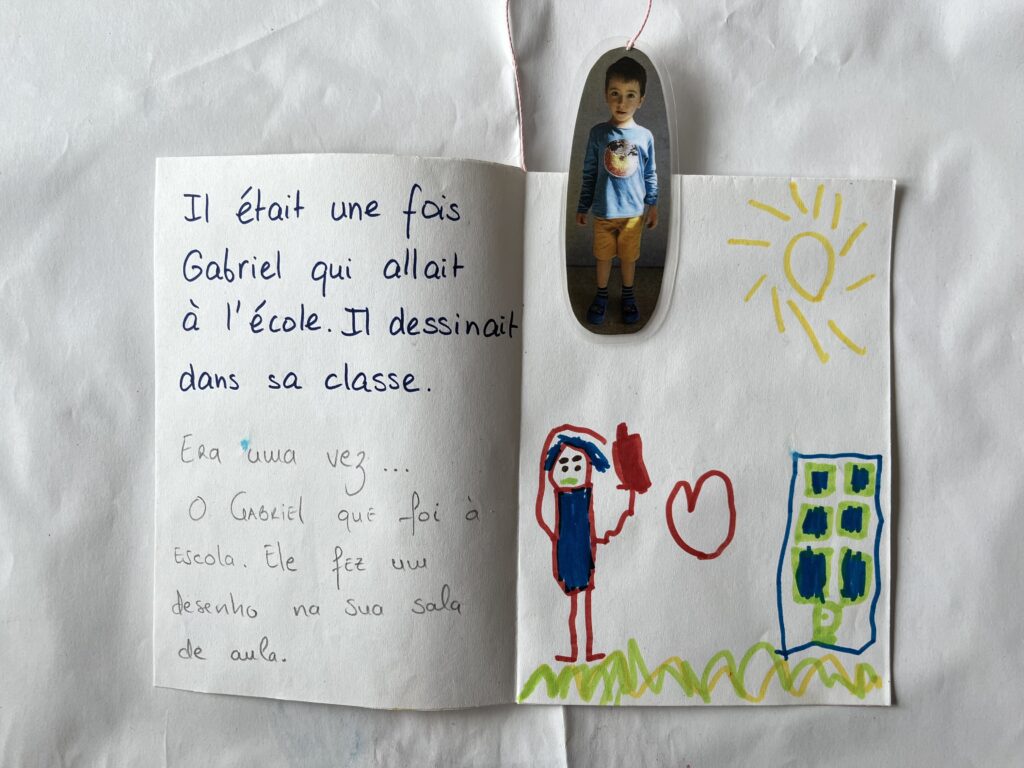 Il était une fois
Gabriel qui allait
à l'école. Il dessinait
dans sa classe.
Era uma vez ...
O GABRIEL que foi à
Escola. Ele fez um
desenho na sua sala
de aula.